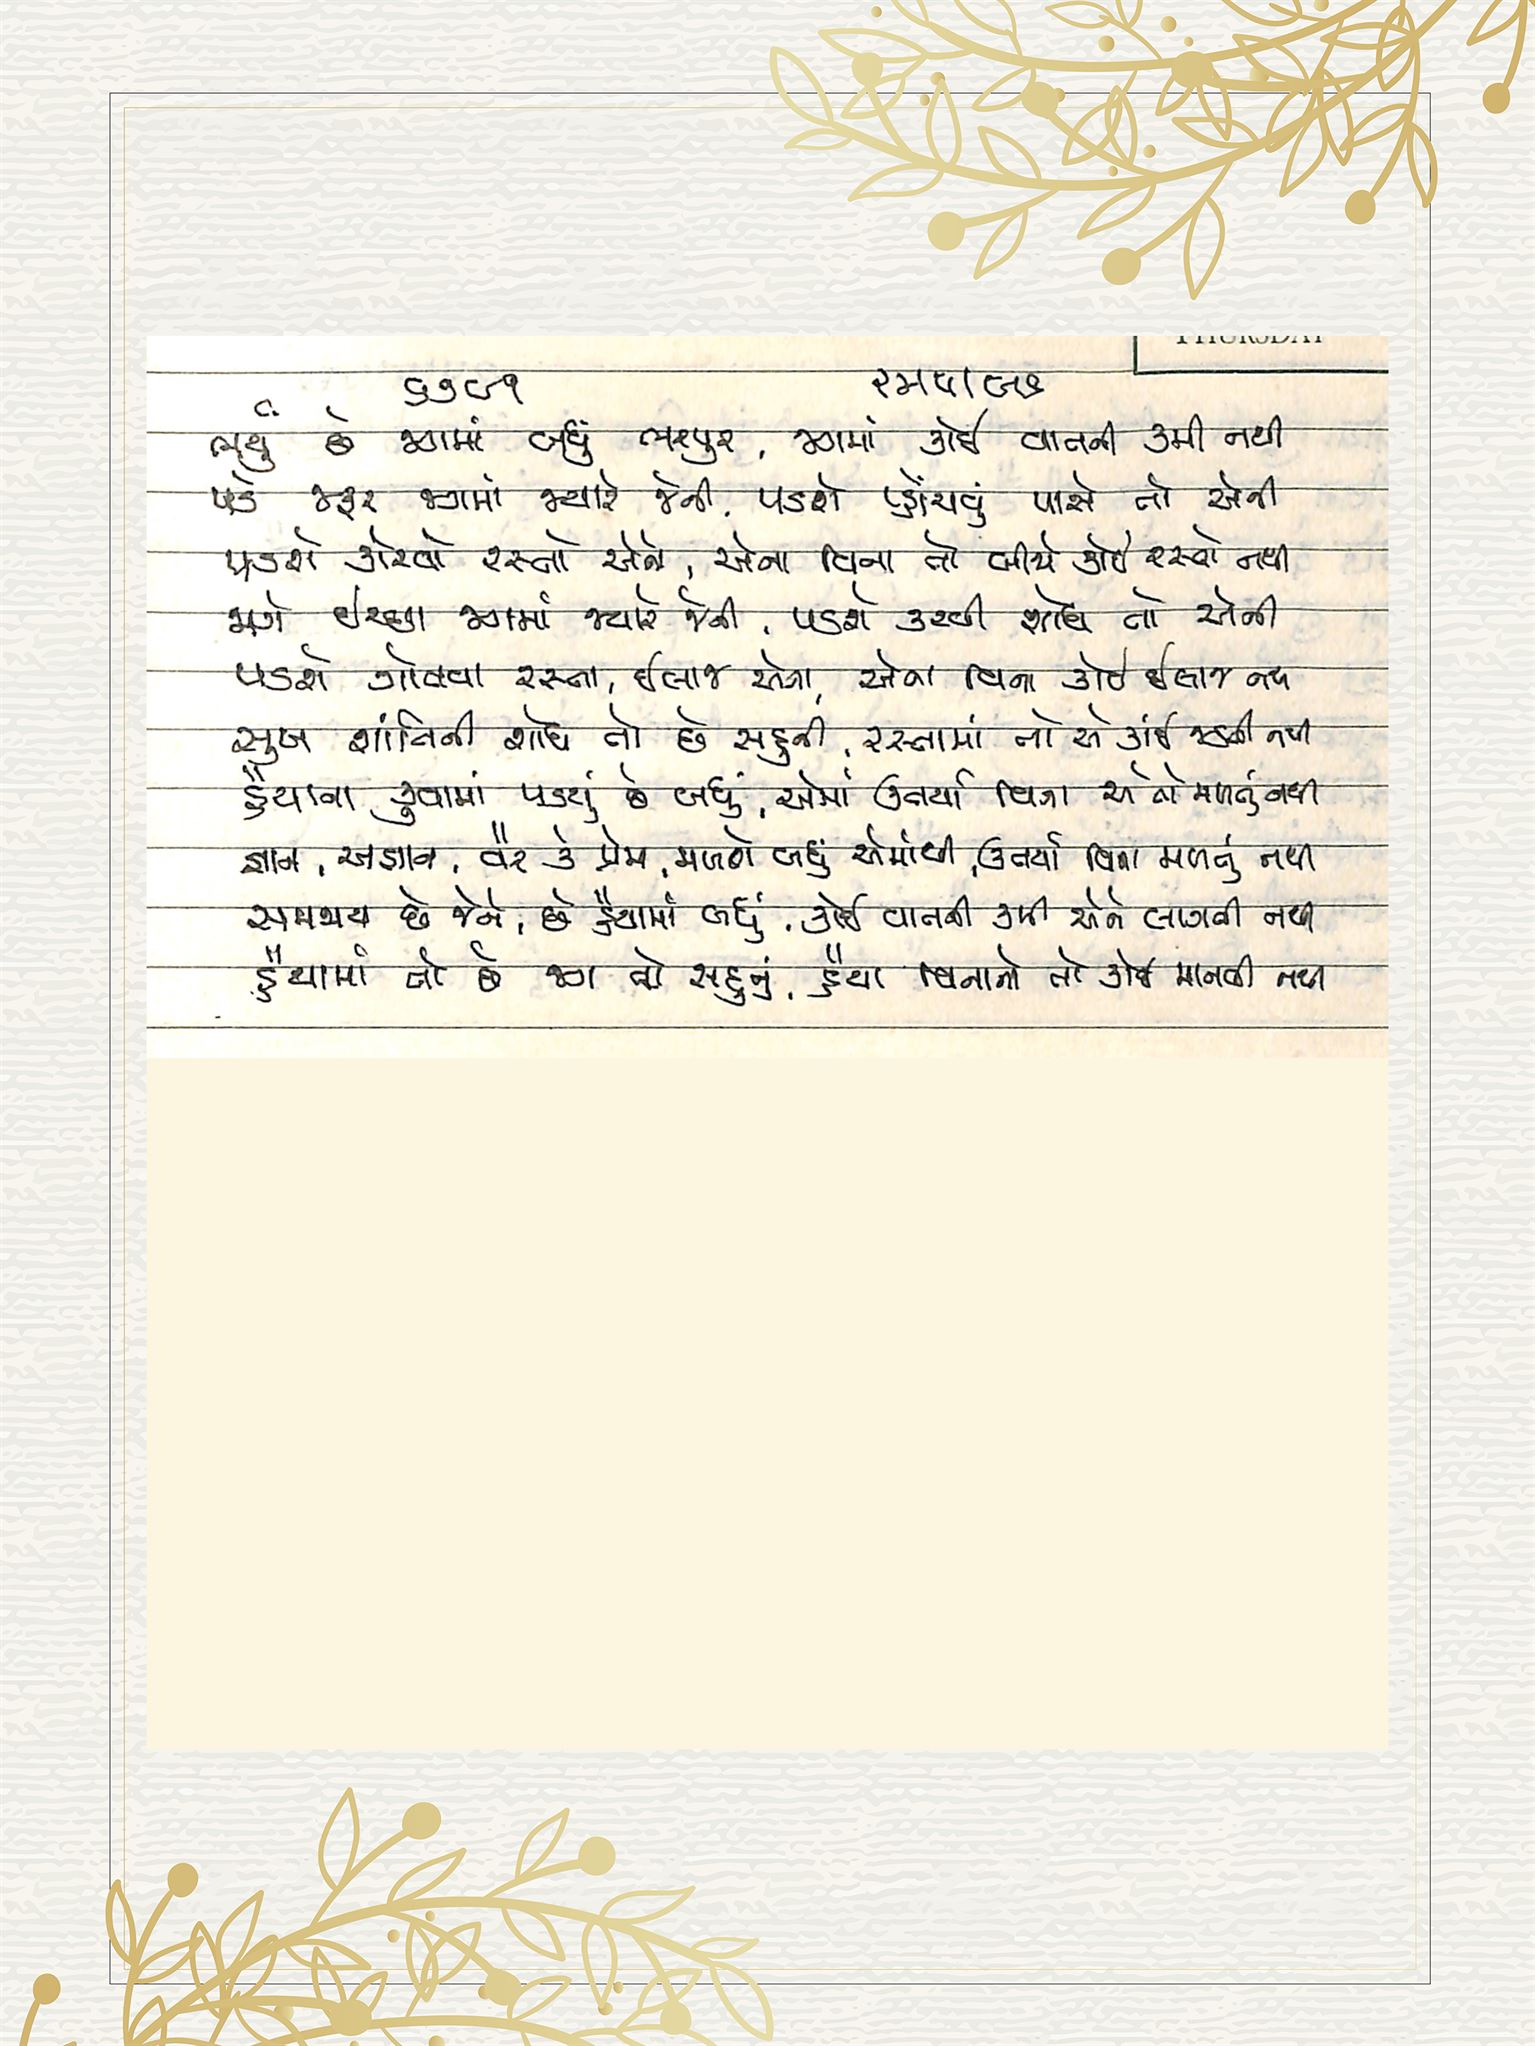 THURSDAY
૬૭૯૧
ભર્યું છે જગમાં બધું ભરપુર, જગમાં કોઈ વાતની કમી નથી
પડે જરૂર જગમાં જ્યારે જેની, પડશે પ્હોંચવું પાસે તો એની
પડશે કોરવો રસ્તો એને, એના વિના તો બીજો કોઈ રસ્તો નથી
જાગે ઈચ્છા જગમાં જ્યારે જેની, પડશે કરવી શોધ તો એની
પડશે ગોતવા રસ્તા, ઈલાજ એના, એના વિના કોઈ ઈલાજ નથી
સુખ શાંતિની શોધ તો છે સહુની, રસ્તામાં તો એ કાંઈ જડતી નથી
હૈયાના કુવામાં પડયું છે બધું, એમાં ઉતર્યા વિના એ તો મળતું નથી
જ્ઞાન, અજ્ઞાન, વૈર કે પ્રેમ, મળશે બધું એમાંથી, ઉતર્યા વિના મળતું નથી
સમજાય છે જેને, છે હૈયામાં બધું, કોઈ વાતની કમી એને લાગતી નથી
હૈયામાં તો છે જગ તો સહુનું, હૈયા વિનાનો તો કોઈ માનવી નથી